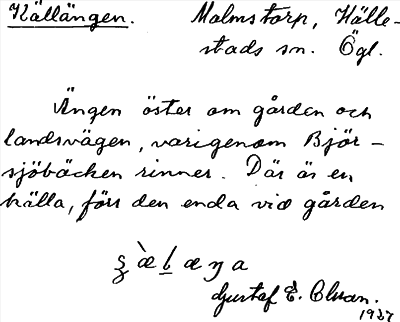 Källängen. Malmstorp, Hälle-
stads sn. Ögl.
Ängen öster om gården och
landsvägen, varigenom Björ-
sjöbäcken rinner. Där är en
källa, förr den enda vid gården
Gustaf E. Olsson.
1937